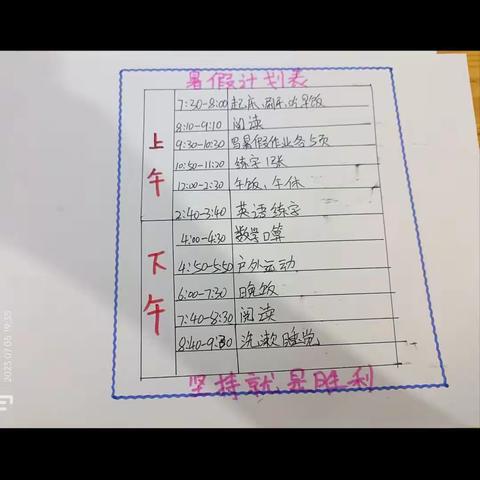 暑假计划表
上午
7:30-8:00 起床、刷牙、吃早饭
8:10-9:10 阅读
9:30-10:30 写暑假作业各5页
10:50-11:20 练字12张
12:00-2:30 午饭、午休
2:40-3:40 英语练字
下午
4:00-4:30 数学口算
4:50-5:50 户外运动
6:00-7:30 晚饭
7:40-8:30 阅读
8:40-9:30 洗漱睡觉
坚持就是胜利
2023/07/05 19:35